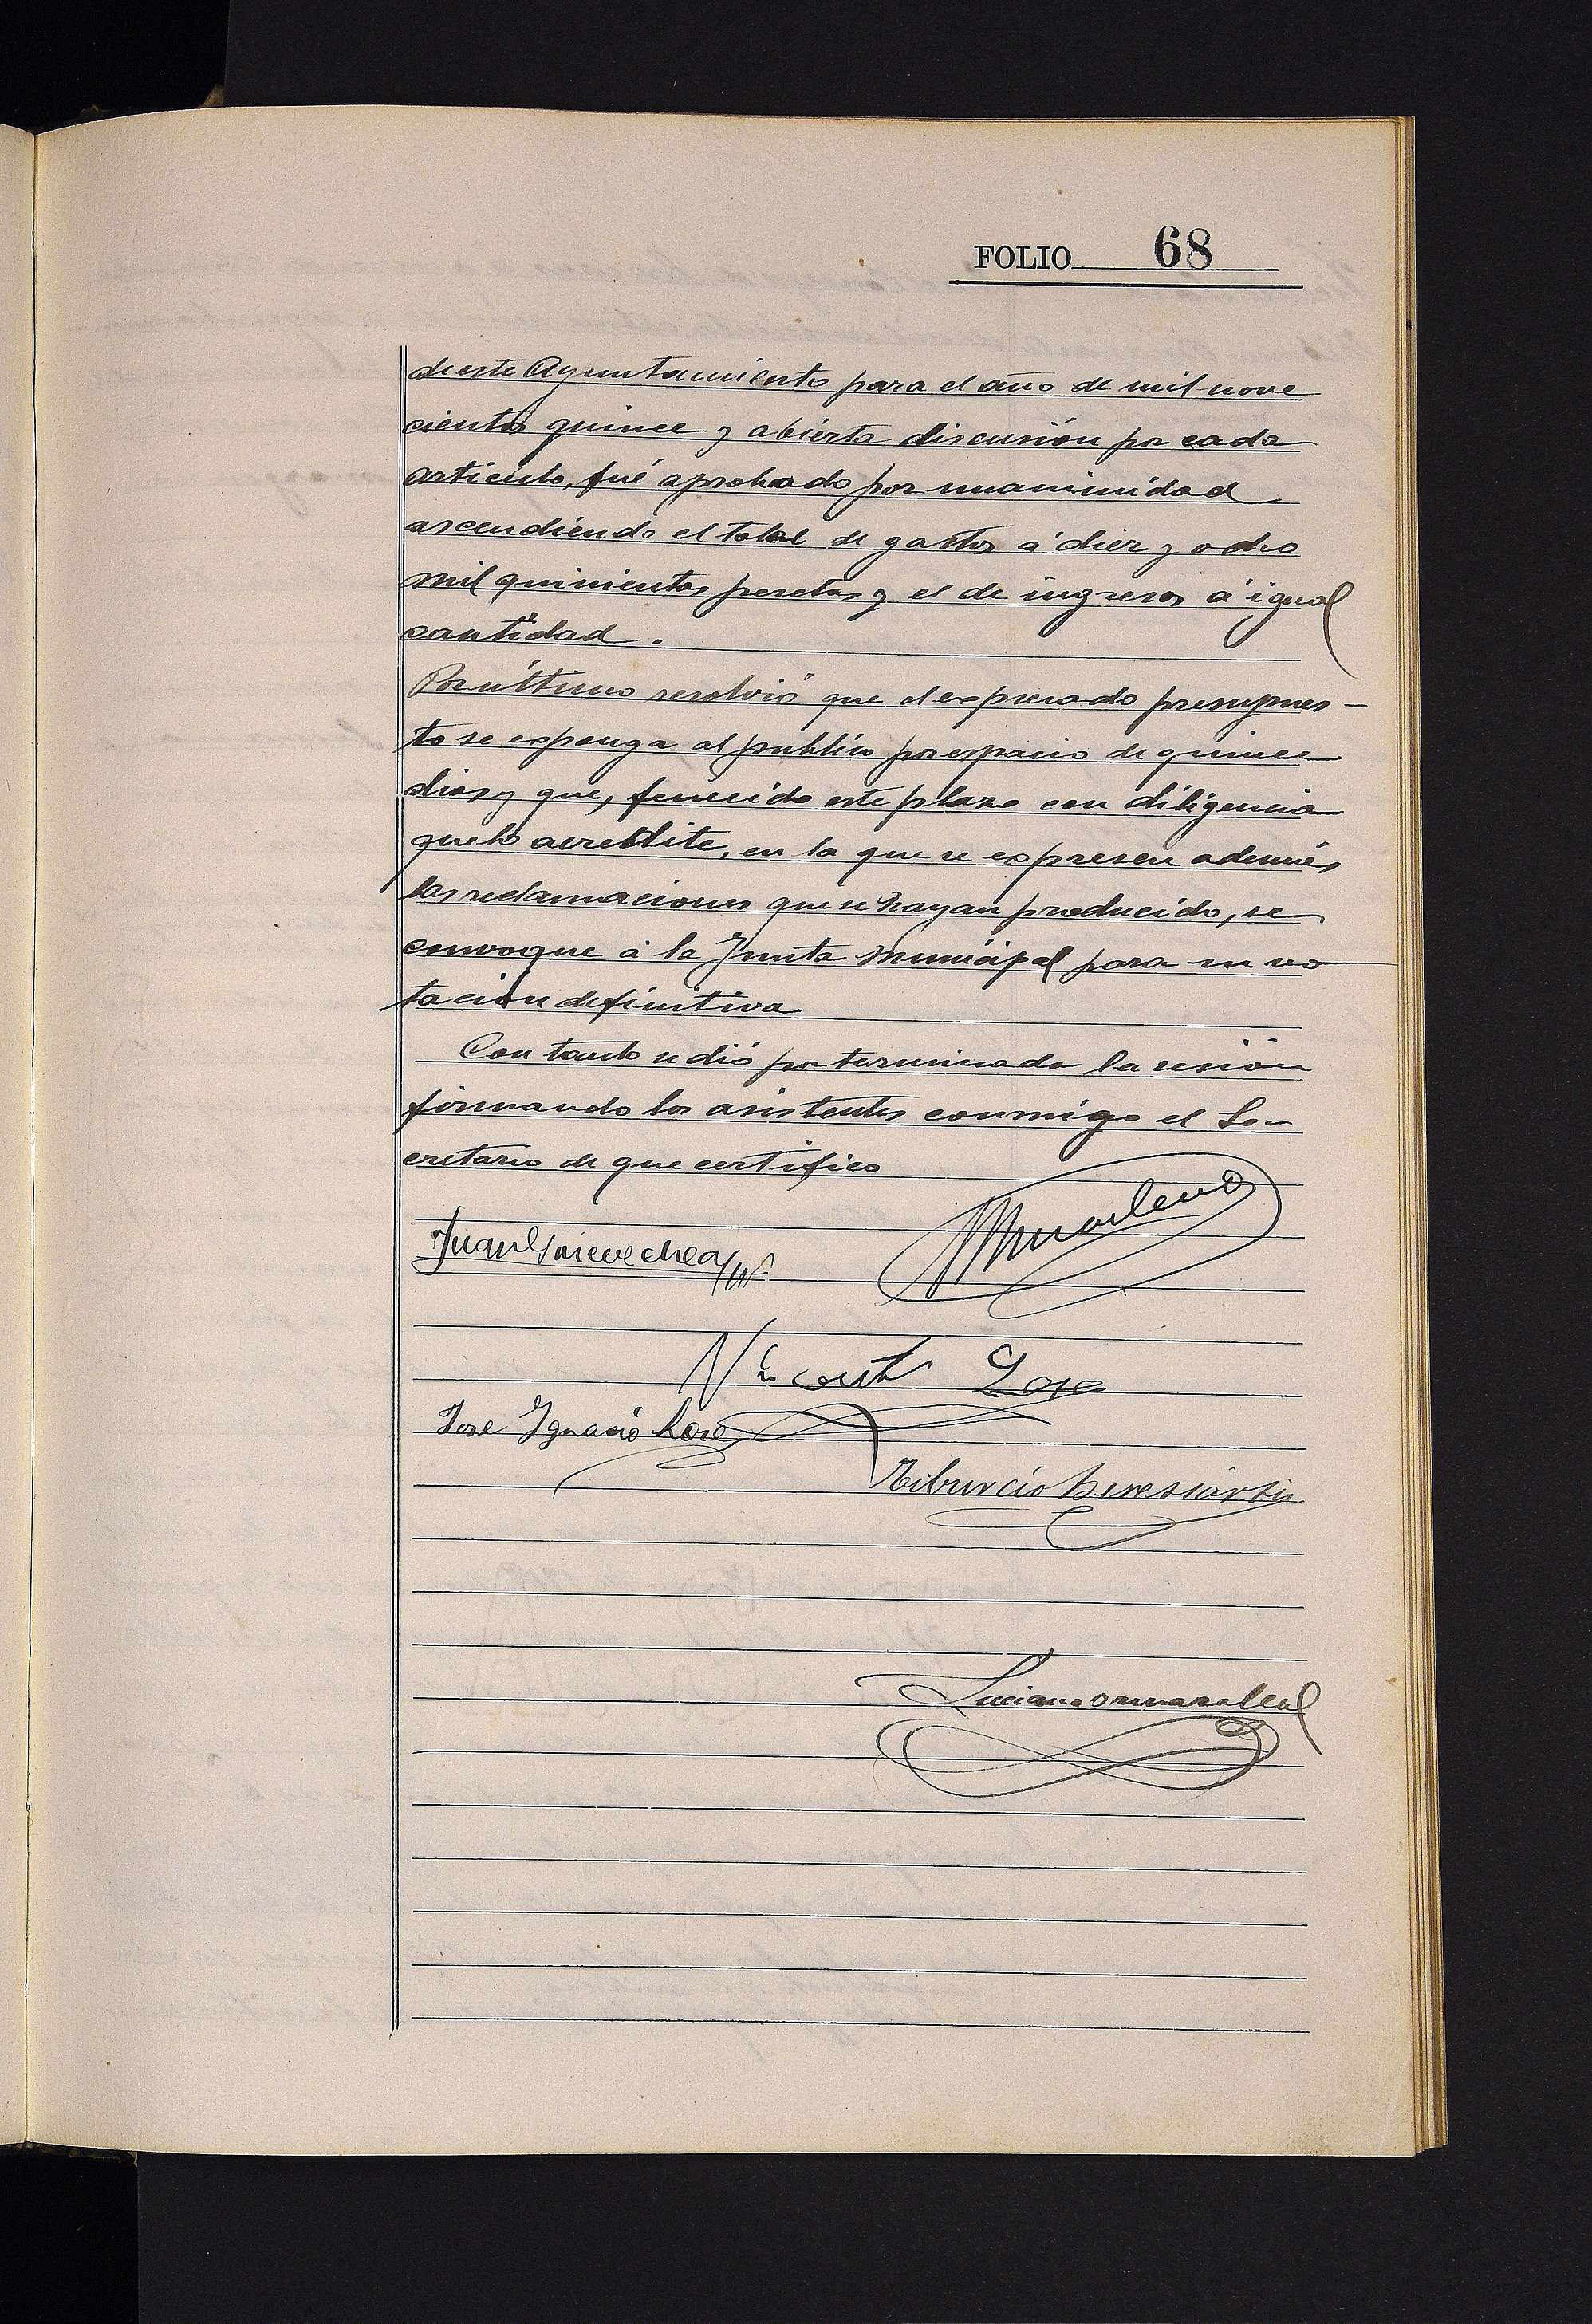 FOLIO 68
de este Ayuntamiento para el año de mil nove
cientos quince y abierta discusión por cada
articulo, fué aprobado por unanimidad
ascendiendo el total de gastos á diez y ocho
mil quinientas pesetas y el de ingresos á igual
cantidad.
Por último resolvió que el expresado presupues-
to se exponga al publico por espacio de quince
dias y que, fenecido este plazo con diligencia
que lo acredite, en la que se expresen además
las reclamaciones que se hayan producido, se
convoque á la Junta Municipal para su vo
tación definitiva
Con tanto se dió por terminada la sesión
firmando los asistentes conmigo el Se-
cretario de que certifico
Juan
Vicente Lasa
Jose Ignacio Lasa
Tiburcio Beresiartu
Luciano Ormazabal